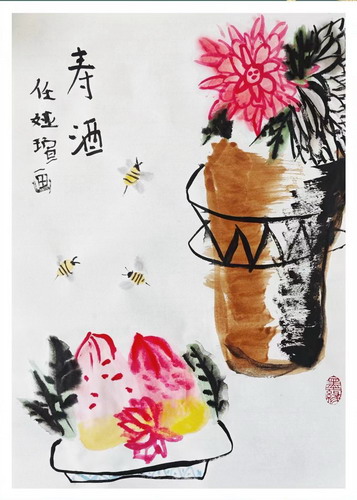 寿酒
任娅瑄画